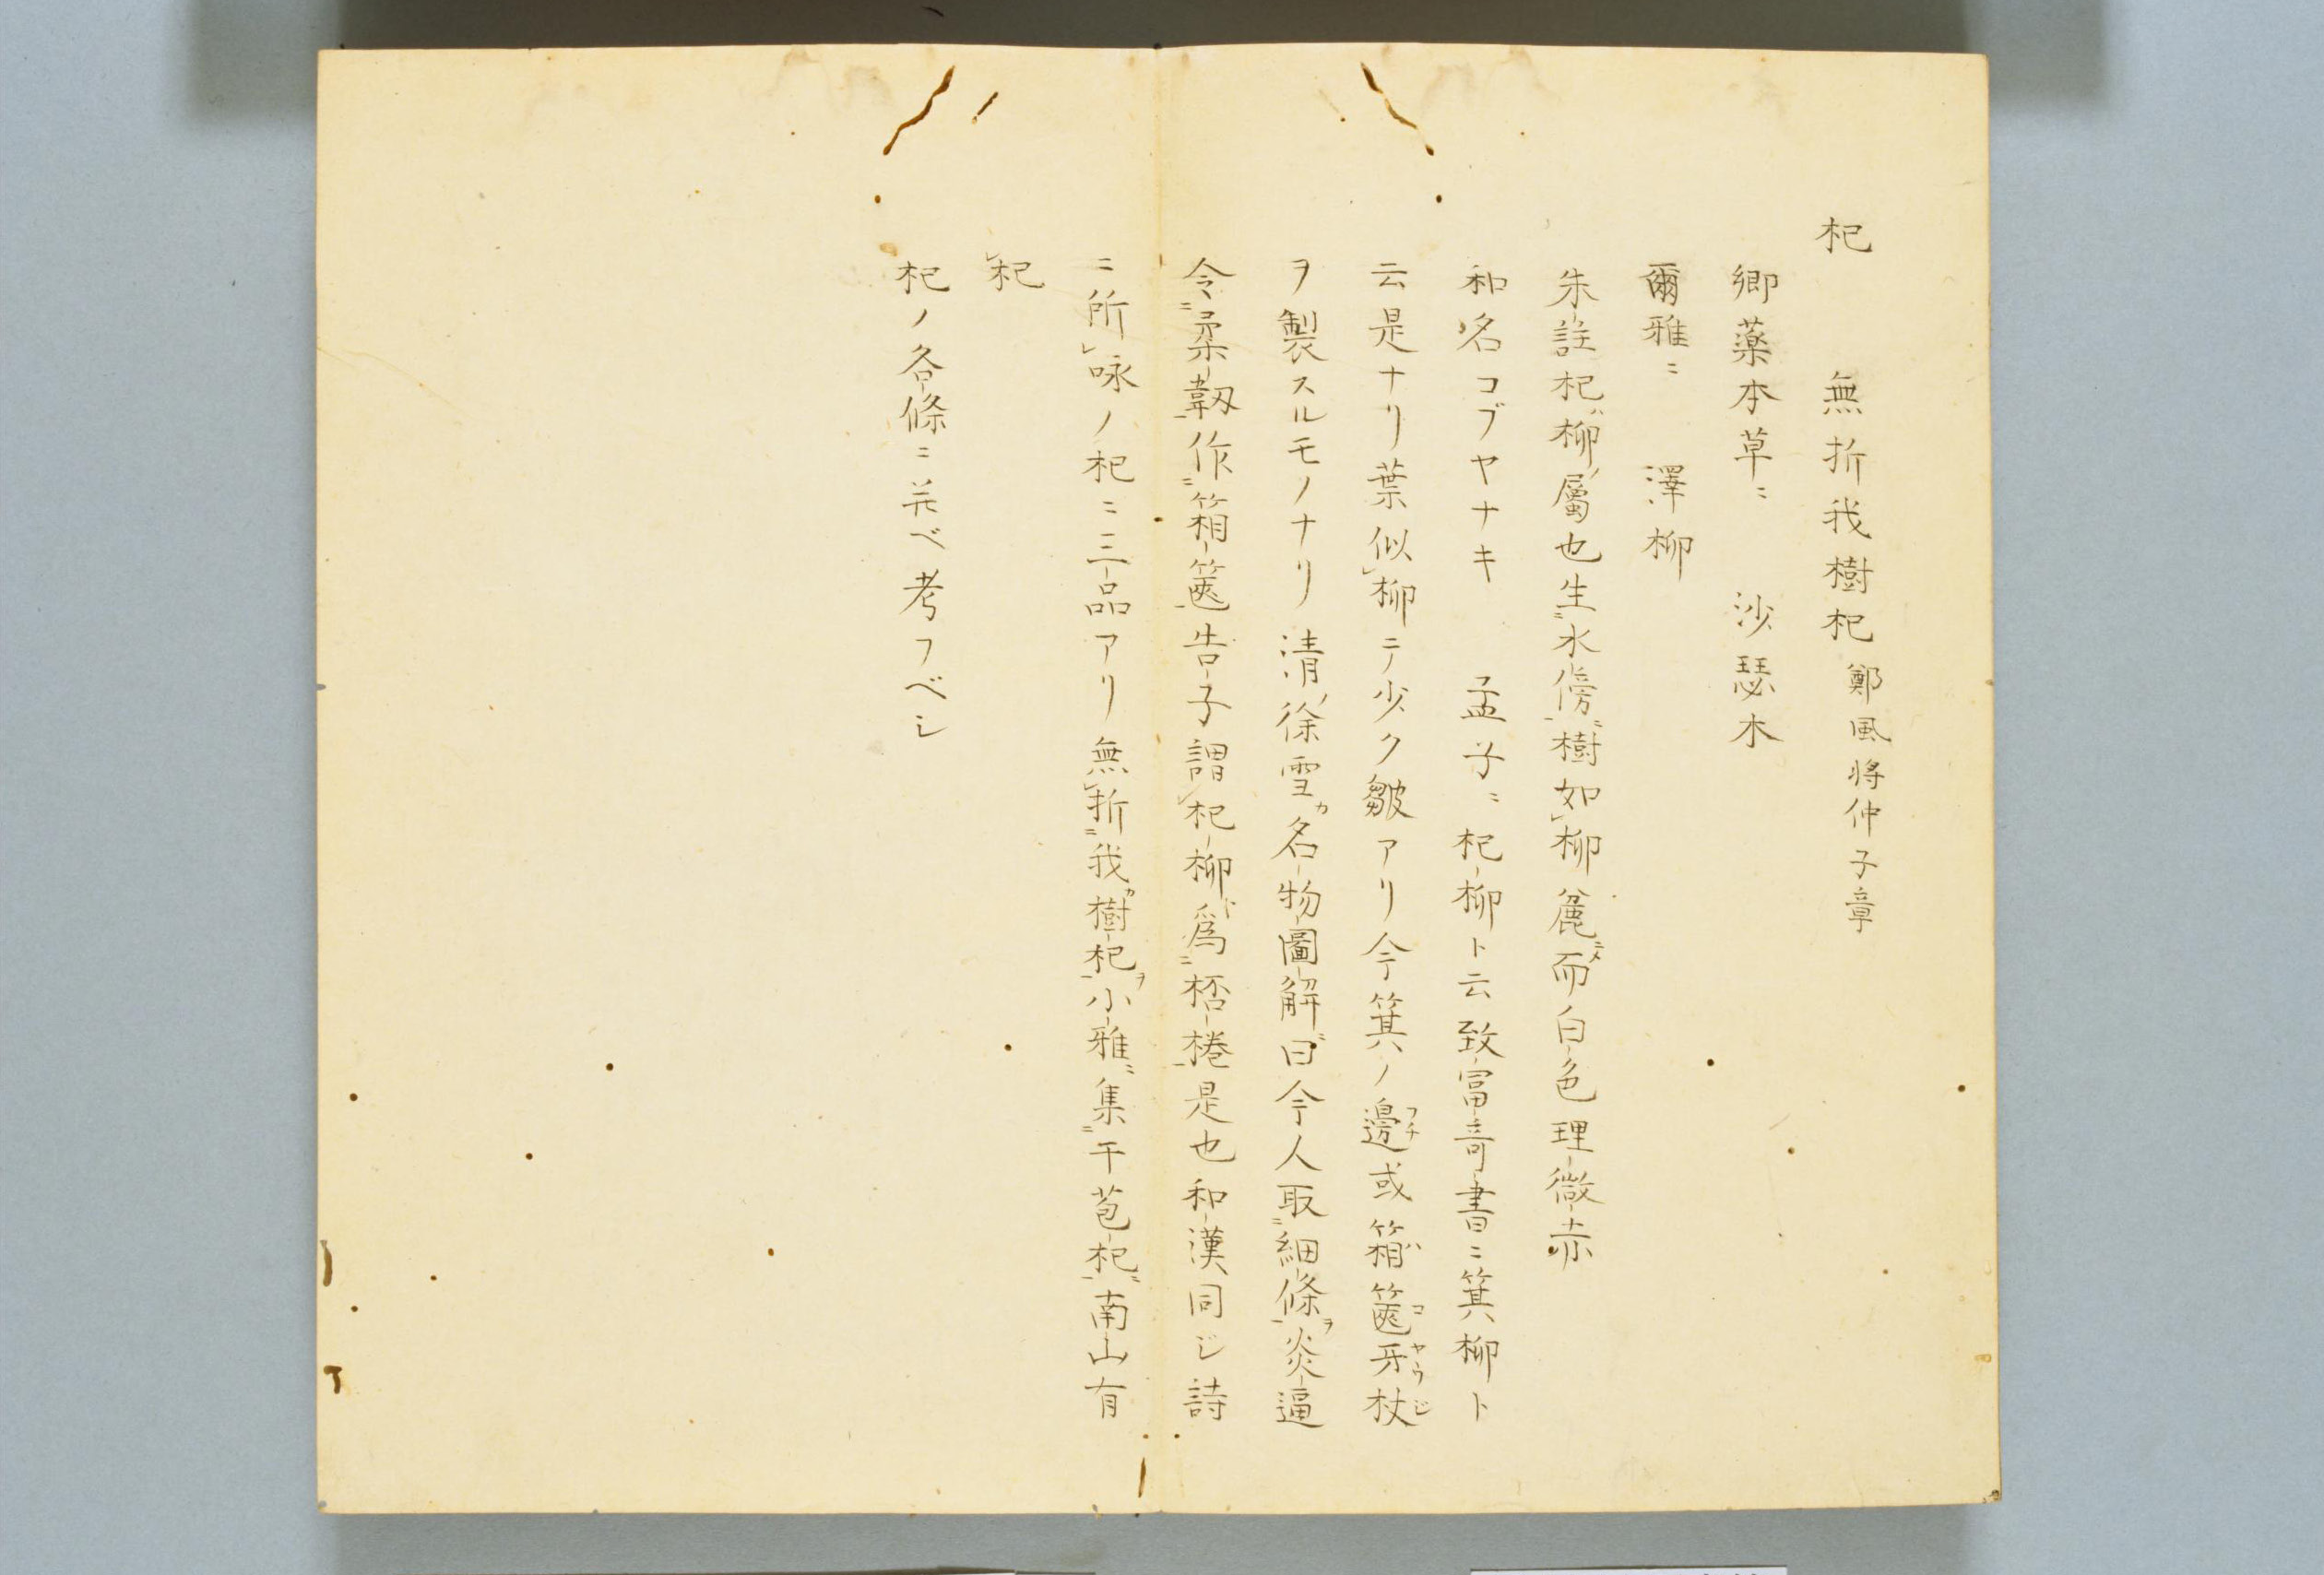 杞　無折我樹杞 鄭風将仲子章
郷薬本草ニ　沙瑟木
爾雅ニ　澤柳
朱註杞ハ柳ノ屬也生水傍樹如柳麁而白色理微赤
和名コブヤナキ　孟子ニ杞柳ト云致富奇書ニ箕柳ト
云是ナリ葉似柳テ少ク皺アリ今箕ノ邊或箱篋牙杖
ヲ製スルモノナリ清ノ徐雪カ名物圖解ニ曰今人取細條ヲ炎逼
令柔韌作箱篋告子謂杞柳ト爲桮棬是也和漢同シ詩
ニ所咏ノ杞ニ三品アリ無折我カ樹杞ヲ小雅ニ集于苞杞ニ南山有
杞
杞ノ各條ニ并ベ考フベシ